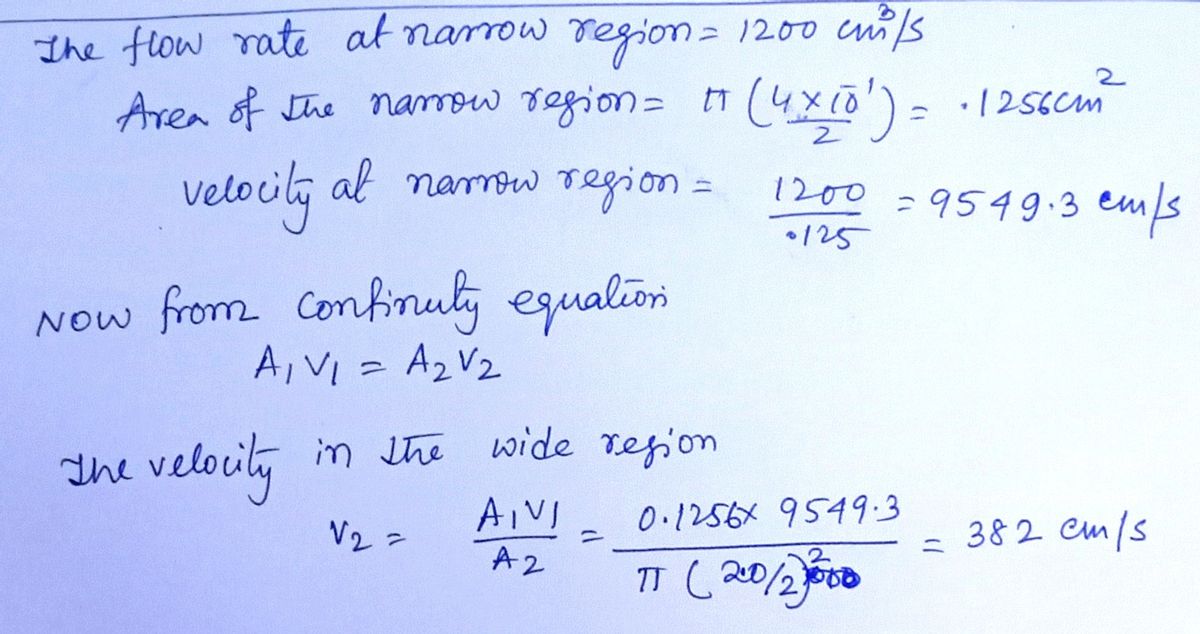 The flow rate at narrow region = 1200 cm³/s
Area of the narrow region = π (4×10¯¹/2) = .1256cm²
velocity at narrow region = 1200/.125 = 9549.3 cm/s
NOW from Continuty equation
A₁V₁ = A₂V₂
The velocity in the wide region
V₂ = A₁V₁/A₂ = 0.1256× 9549.3/π (2.0/2)² = 382 cm/s